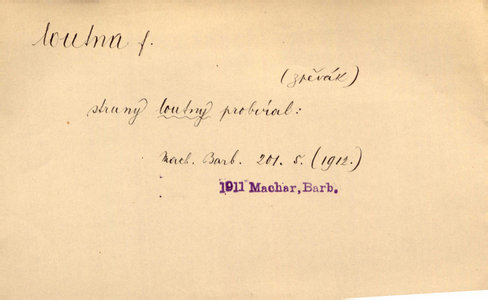 loutna f.
(zpěvák)
struny loutny probíral:
Mach. Barb. 201. 5. (1912.)
1911 Machar, Barb.